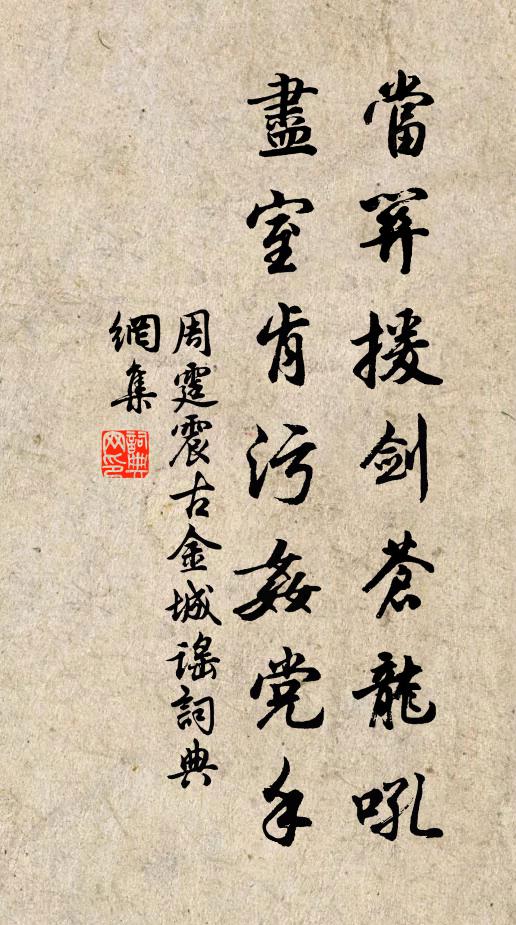 當笄援剑苍龍吼
盡室肯污姦党手
周霆震古金城謠詞典
網集
詞典
网印